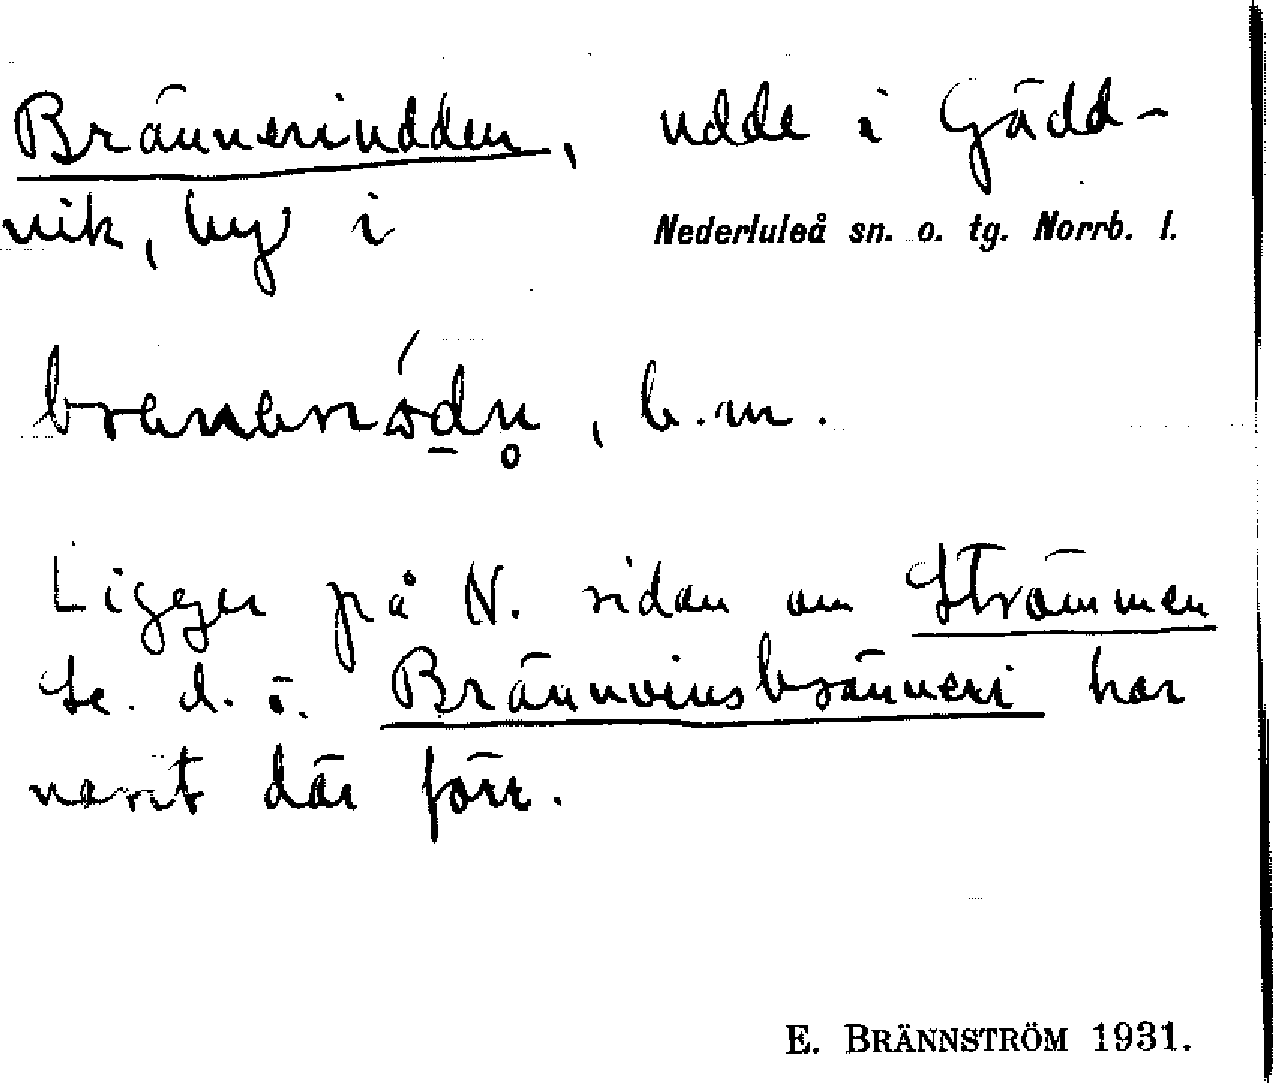 Brännerindden, udde i Gädd-
vik, by i Nederluleå sn. o. tg. Norrb. l.
, b.m.
Ligger på N. sidan om Strömmen
Se. d. o. Brännvinsbränneri har
varit där förr.
E. BRÄNNSTRÖM 1931.